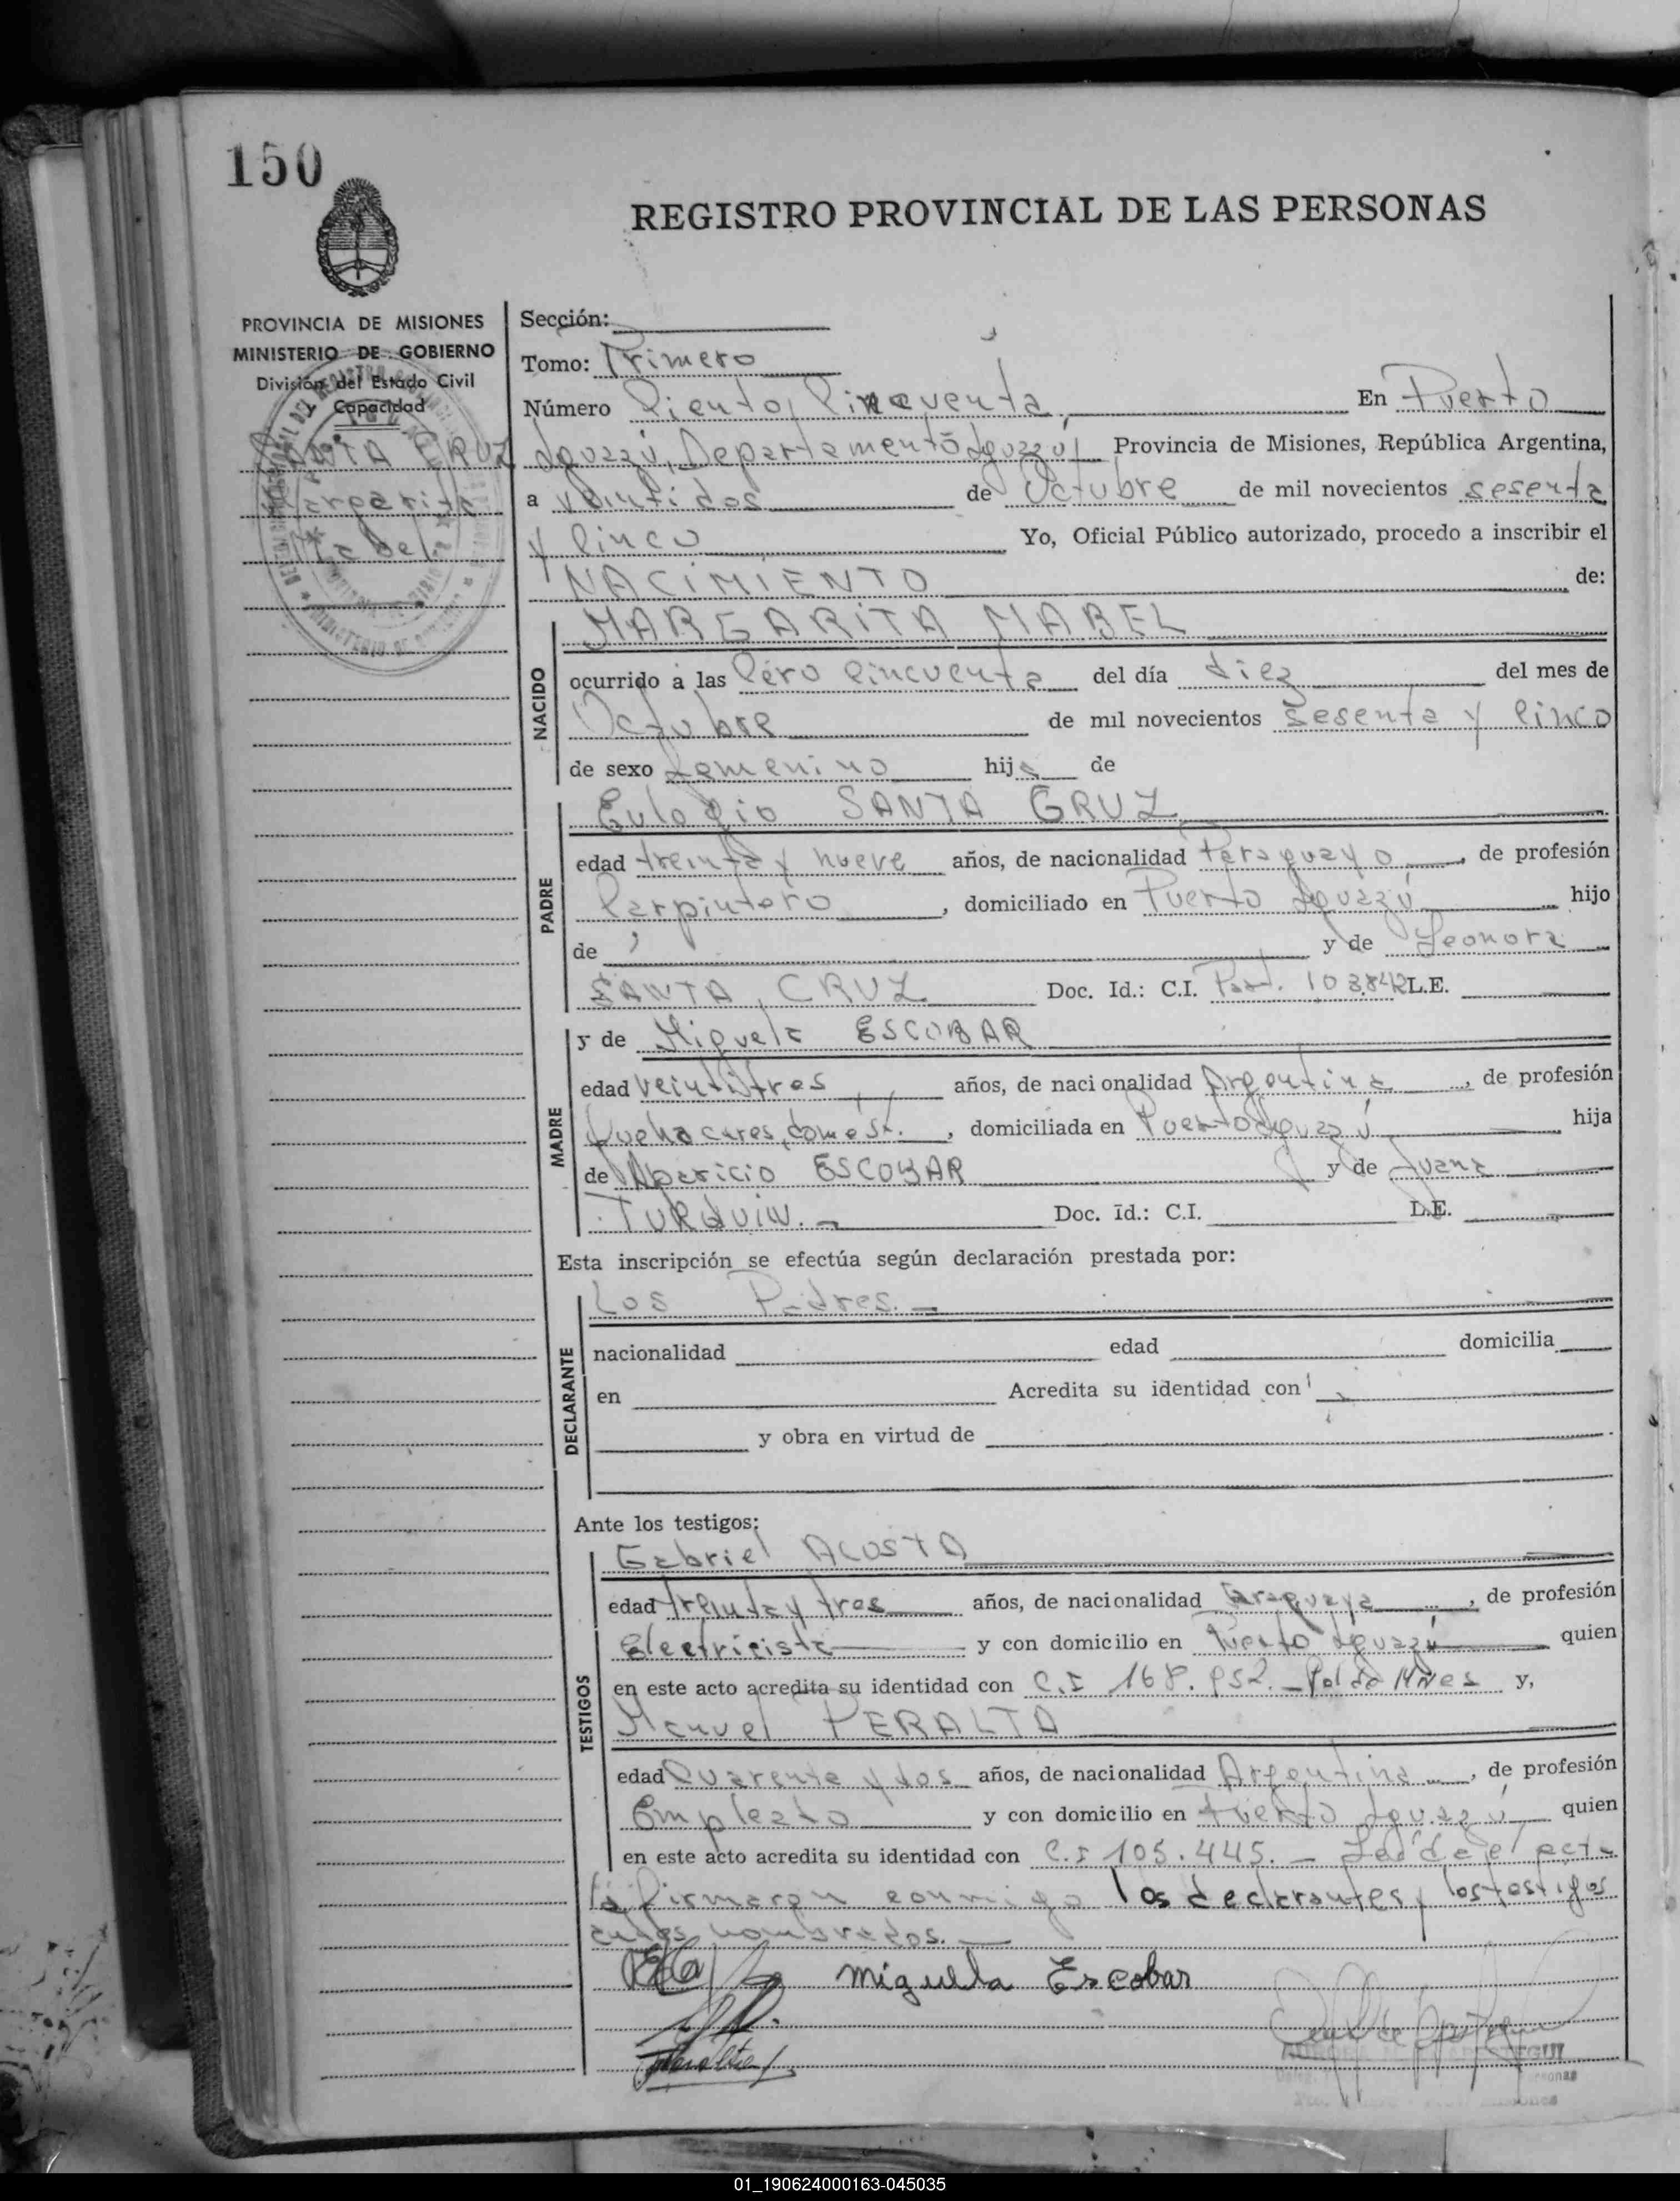 150
REGISTRO PROVINCIAL DE LAS PERSONAS
PROVINCIA DE MISIONES
MINISTERIO DE GOBIERNO
División del Estado Civil
y Capacidad
SANTA CRUZ
Margarita
Mabel
Sección:
Tomo: Primero
Número Ciento Cincuenta, En Puerto
Iguazú, Departamento Iguazú, Provincia de Misiones, República Argentina,
a veintidos de Octubre de mil novecientos sesenta
y Cinco Yo, Oficial Público autorizado, procedo a inscribir el
NACIMIENTO de:
NACIDO
MARGARITA MABEL
ocurrido a las Cero Cincuenta del día diez del mes de
Octubre de mil novecientos Sesenta y Cinco
de sexo femenino hija de
PADRE
Eulogio SANTA CRUZ
edad treinta y nueve años, de nacionalidad Paraguayo, de profesión
Carpintero, domiciliado en Puerto Iguazú hijo
de y de Leonora
SANTA CRUZ Doc. Id.: C.I. 103842 L.E.
MADRE
y de Miguela ESCOBAR
edad veintitres años, de nacionalidad Argentina, de profesión
Quehaceres domést., domiciliada en Puerto Iguazú hija
de Aparicio ESCOBAR y de Juana
TURQUIN. Doc. Id.: C.I. L.E.
Esta inscripción se efectúa según declaración prestada por:
DECLARANTE
Los Padres.
nacionalidad edad domicilia
en Acredita su identidad con
y obra en virtud de
Ante los testigos:
TESTIGOS
Gabriel ACOSTA
edad treinta y tres años, de nacionalidad Paraguaya, de profesión
Electricista y con domicilio en Puerto Iguazú quien
en este acto acredita su identidad con C.I 168.952. Pol de Mnes y,
Manuel PERALTA
edad Cuarenta y dos años, de nacionalidad Argentina, de profesión
Empleado y con domicilio en Puerto Iguazú quien
en este acto acredita su identidad con C.I 105.445. Leída el acta
la firmaron conmigo los declarantes y los testigos
antes nombrados.
Miguela Escobar
01_190624000163-045035